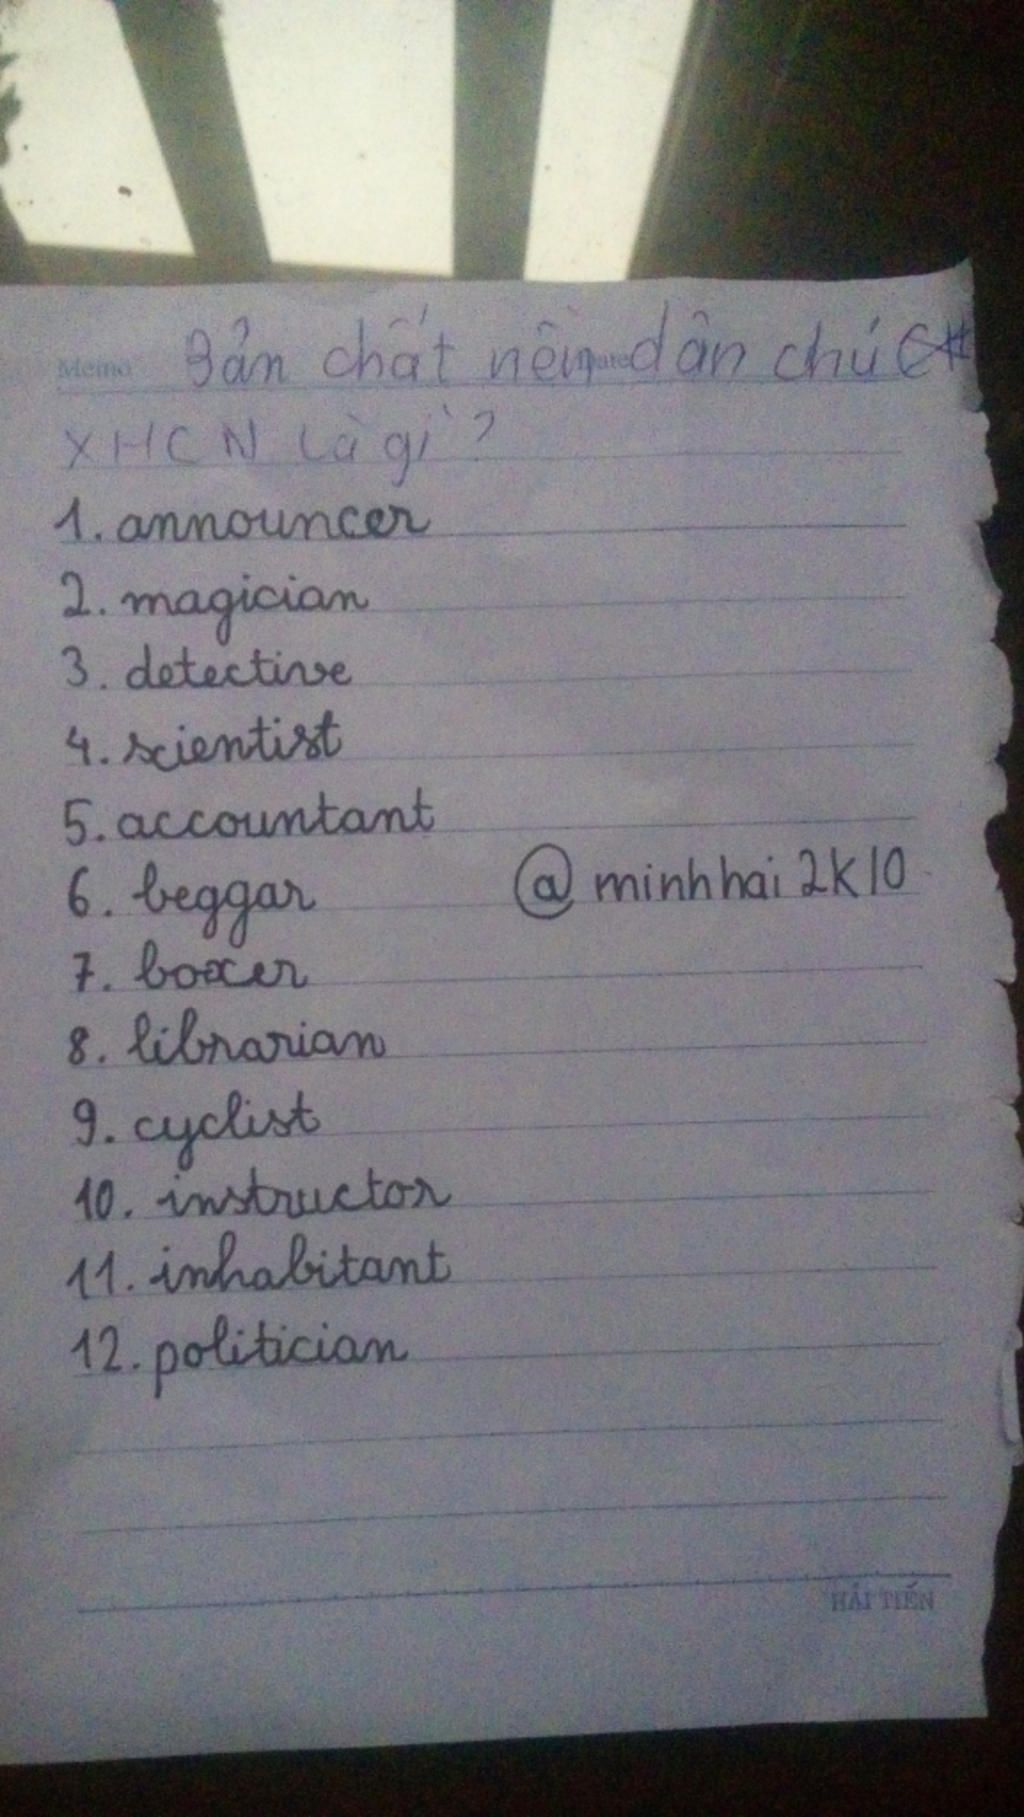 Memo
Bản chất nền dân chủ
XHCN là gì?
1. announcer
2. magician
3. detective
4. scientist
5. accountant
6. beggar @minhhai2K10
7. boxer
8. librarian
9. cyclist
10. instructor
11. inhabitant
12. politician
HẢI TIẾN